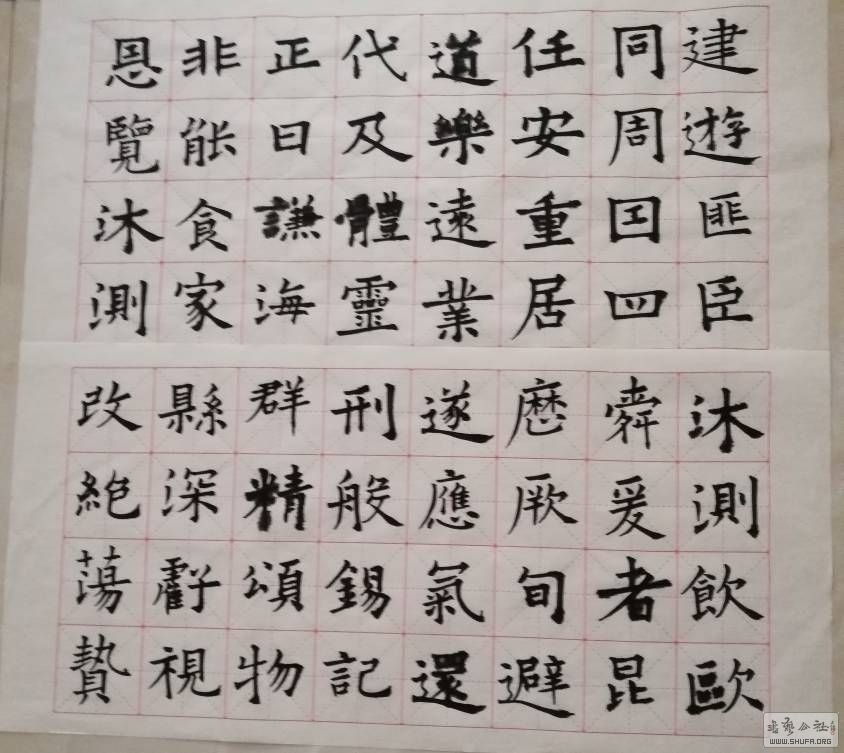 建遊匪臣
同周囯四
任安重居
道樂遠業
代及體靈
正日謙海
非能食家
恩覽沐測
沐測飲歐
舜爰者昆
厥旬避
遂應氣還
刑般錫記
群精頌物
縣深視
改絶蕩贄
www.shufa.org